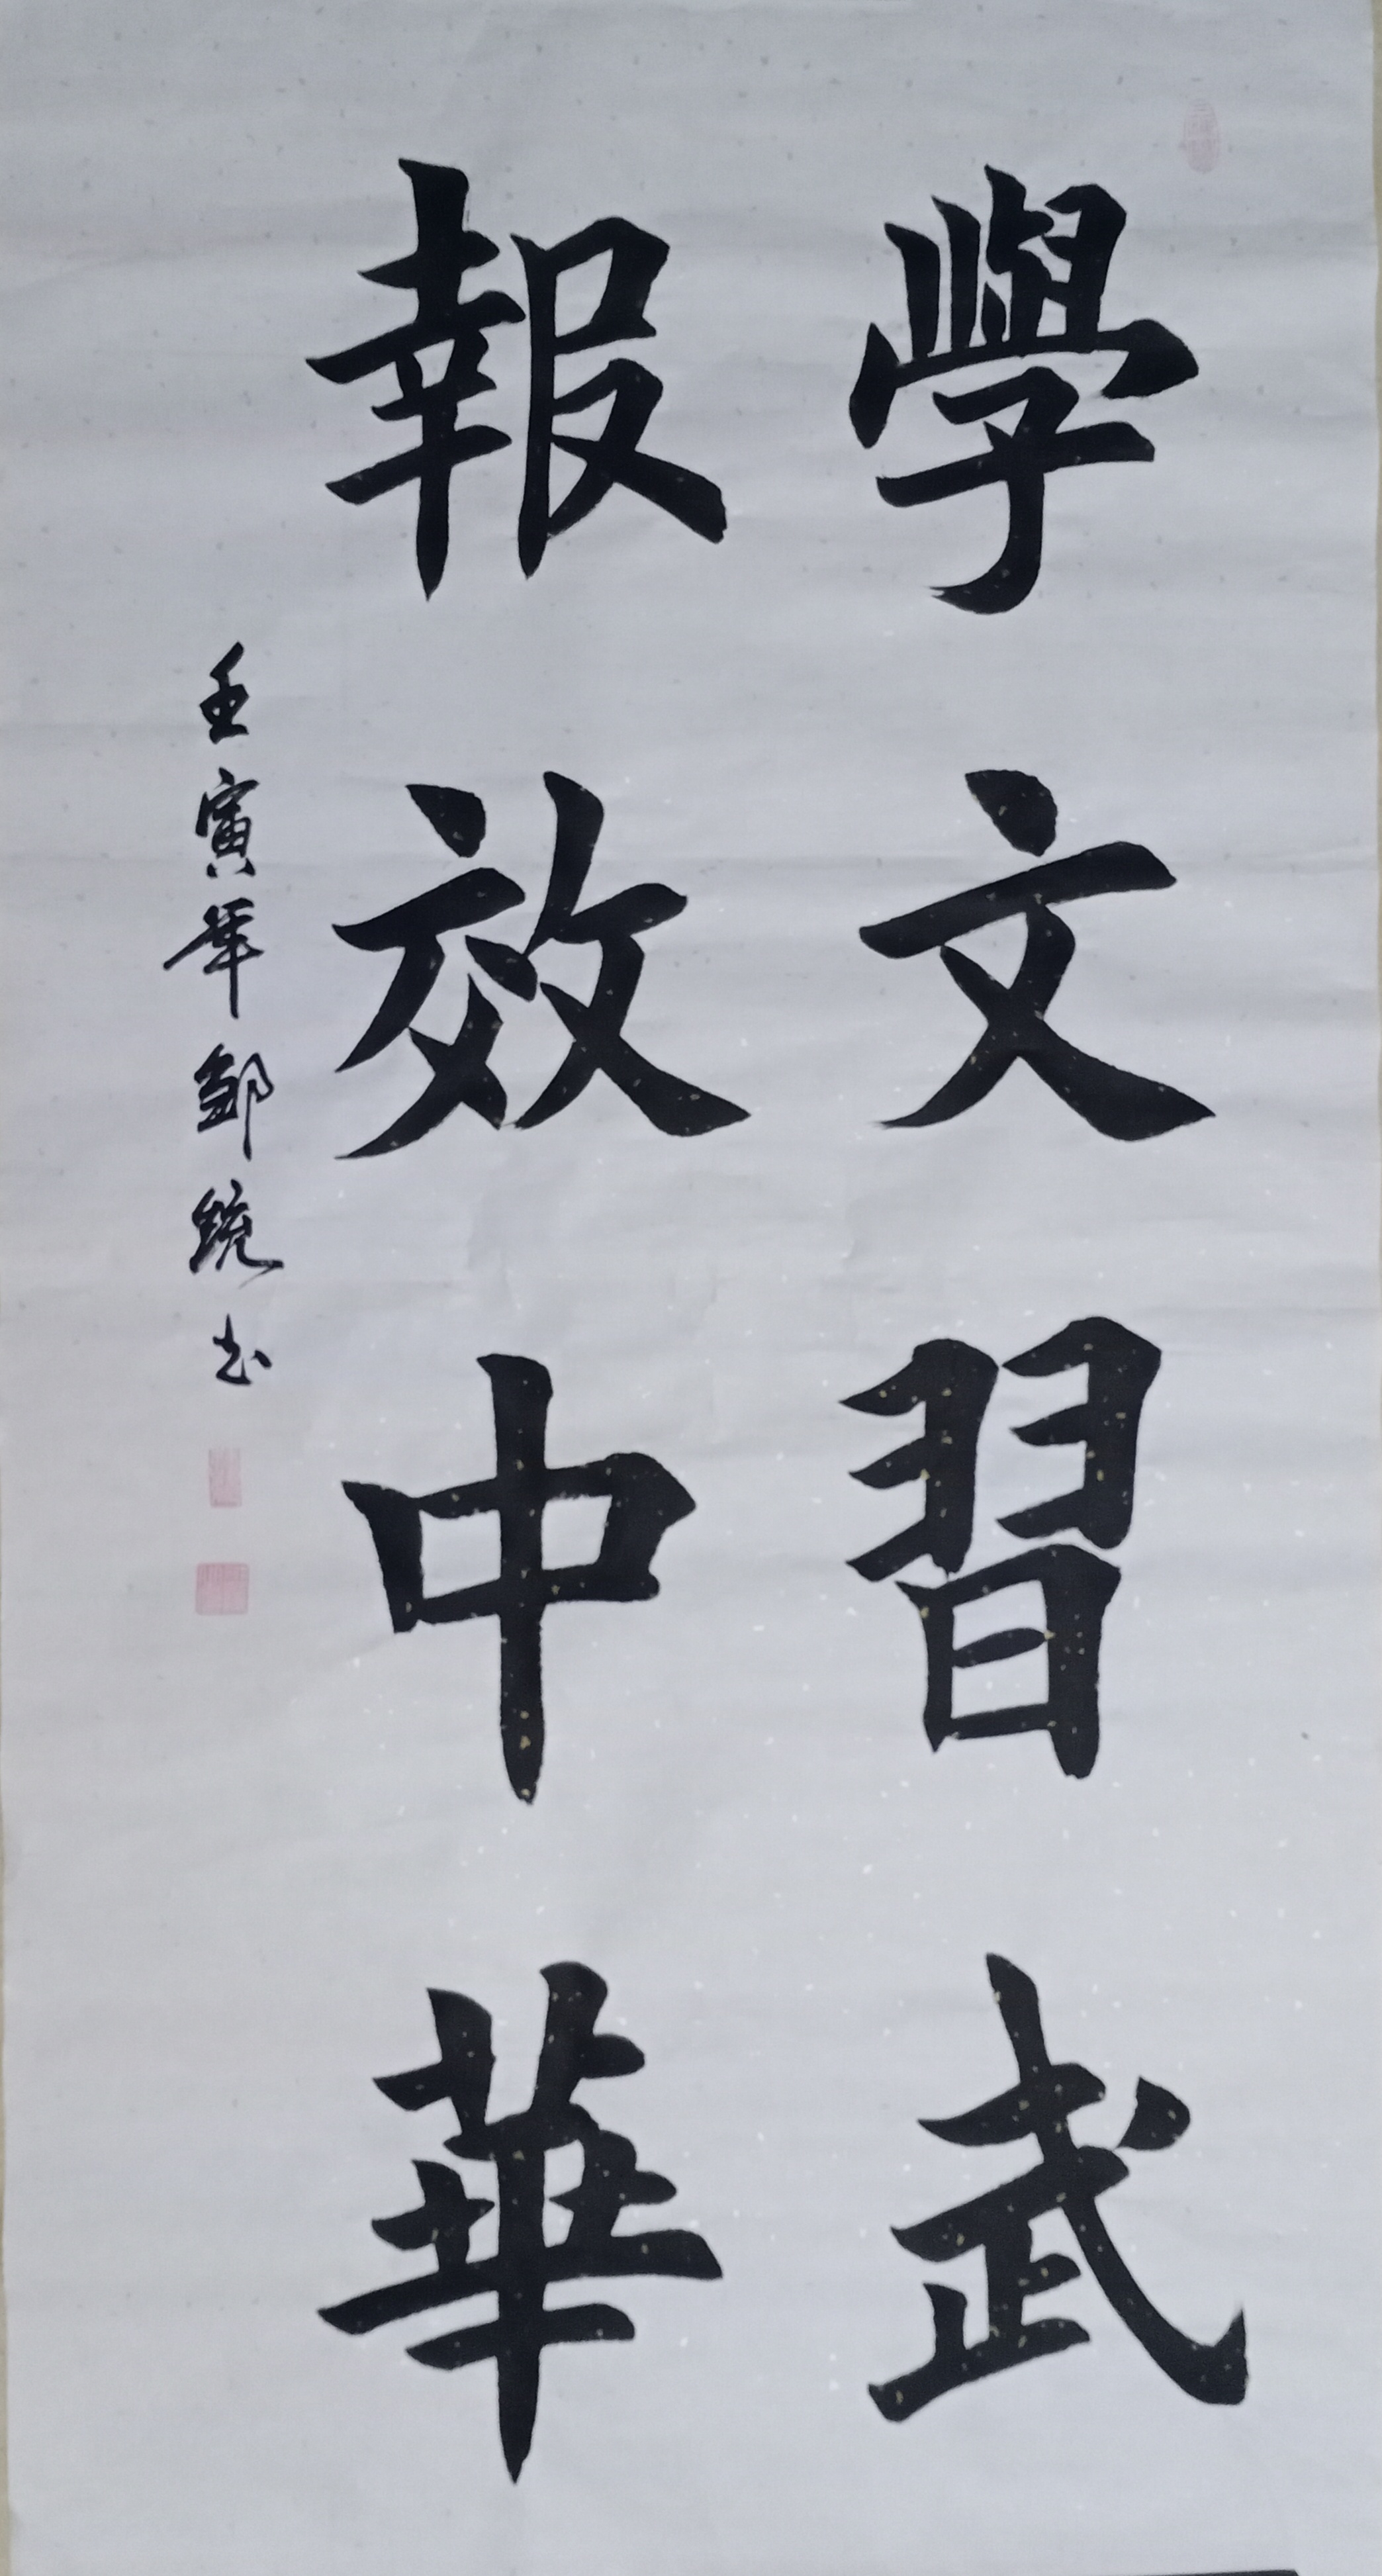 學文習武
報效中華
壬寅年鄒統书